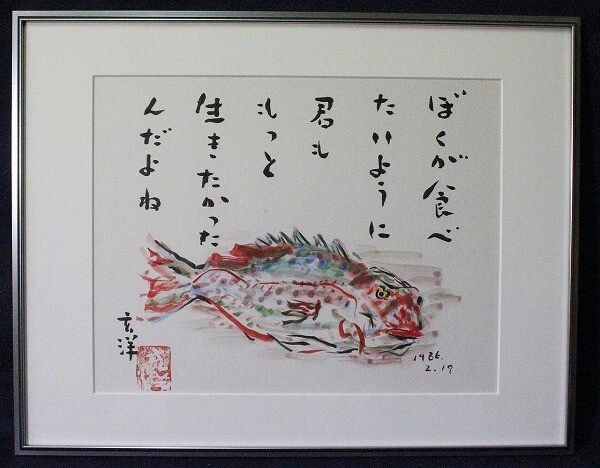 ぼくが食べ
たいように
君も
もっと
生きたかった
んだよね
玄洋
2.17